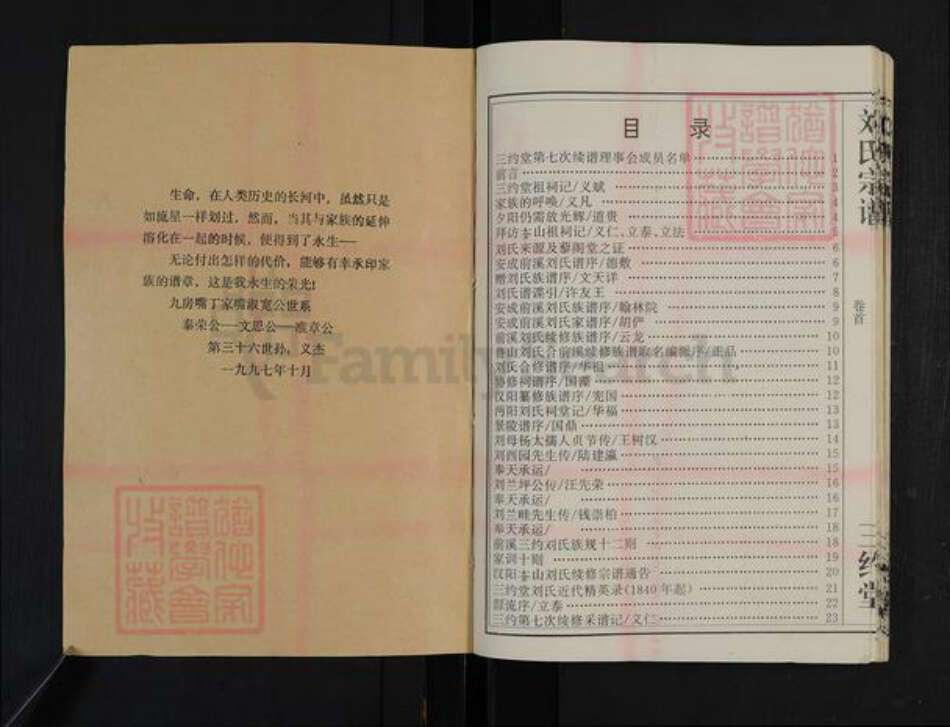 生命，在人类历史的长河中，虽然只是
如流星一样划过，然而，当其与家族的延伸
溶化在一起的时候，便得到了永生——
无论付出怎样的代价，能够有幸承印家
族的谱章，这是我永生的荣光!
九房嘴丁家嘴淑宽公世系
秦荣公——文思公——维章公
第三十六世孙：义杰
一九九七年十月
目 录
三约堂第七次续谱理事会成员名单 1
前言 2
三约堂祖祠记/义斌 3
家族的呼唤/义凡 4
夕阳仍需放光辉/道贵 4
拜访夲山祖祠记/义仁、立泰、立法 5
刘氏来源及藜阁堂之证 6
安成前溪刘氏谱序/德敷 6
赠刘氏族谱序/文天详 7
刘氏谱谍引/许友王 8
安成前溪刘氏族谱序/翰林院 9
安成前溪刘氏家谱序/胡俨 9
前溪刘氏续修族谱序/云龙 10
鲁山刘氏合前溪续修族谱取名编派序/正品 10
刘氏合修谱序/华祖 11
协修祠谱序/国溁 12
汉阳纂修族谱序/宪国 12
沔阳刘氏祠堂记/华福 13
景陵谱序/国鼎 13
刘母杨太孺人贞节传/王树汉 14
刘酉园先生传/陆建瀛 15
奉天承运/ 15
刘兰坪公传/汪先荣 16
奉天承运/ 16
刘兰畦先生传/钱崇柏 17
奉天承运/ 18
前溪三约刘氏族规十二则 18
家训十则 19
汉阳夲山刘氏续修宗谱通告 20
三约堂刘氏近代精英录(1840年起) 21
源流序/立泰 22
三约第七次续修采谱记/义仁 23
刘氏宗谱
卷首
三约堂
FamilySearch